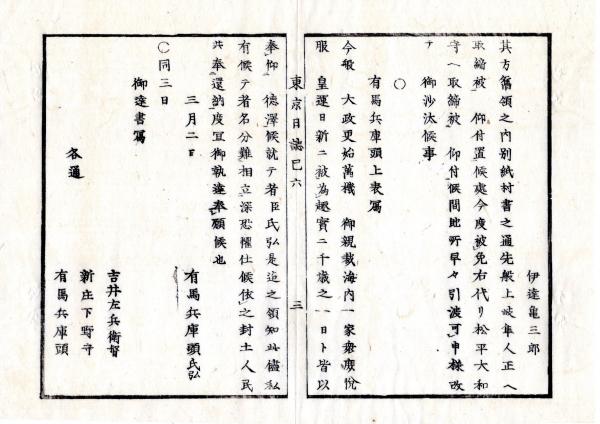 伊達亀三郎
其方舊領之内別紙村書之通先般上岐隼人正へ
取締被　仰付置候処今度被免右代リ松平大和
守へ取締被　仰付候間此所早々引渡可申様改
テ　御沙汰候事
○
有馬兵庫頭上表寫
今般　大政更始萬機　御親裁海内一家衆慶悅
服　皇運日新ニ被為趣實二千歳之一日ト皆以
東京日誌巳六
三
奉仰　徳澤候就テ者臣氏弘是迄之領知此儘私
有候テ者名分難相立深恐懼仕候依之封土人民
共奉還納度宜御執達奉願候也
三月二日
有馬兵庫頭氏弘
○同三日
御達書寫
吉井左兵衛督
新庄下野守
有馬兵庫頭
各通